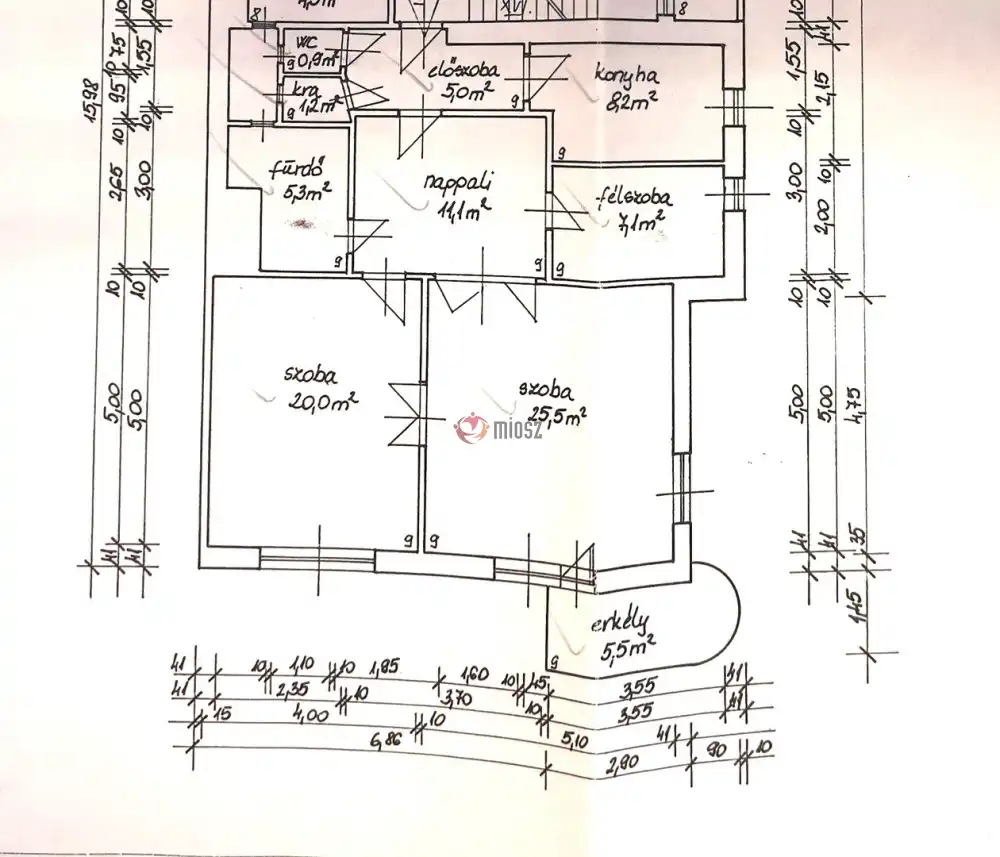 8
8
wc
0,9m²
9
kra
1,2m²
9
előszoba
5,0m²
9
konyha
8,2m²
9
fürdő
5,3m²
9
nappali
11,1m²
9
félszoba
7,1m²
9
szoba
20,0m²
9
szoba
25,5m²
9
miosz
erkély
5,5m²
9
15,98
10
75
10
95
10
2,65
10
5,00
41
10
1,55
10
3,00
10
5,00
41
10
1,55
10
3,00
10
5,00
41
41
2,15
10
2,00
10
5,00
41
4,75
35
1,45
41 10 1,10 10 1,85 1,60 10 45 3,55 41
41 2,35 10 3,70 10 3,55 41
15 4,00 10 5,10 41
6,86 2,90 90 10